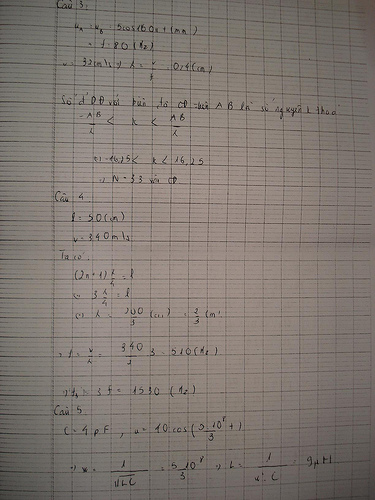 Câu 3:
u_A = u_B = 5cos160π t (mm)
= f = 80 (Hz)
v = 32 cm/s λ = v/f = 0,4 (cm)
Số điểm với biên độ CĐ trên AB là số nguyên k thoả
-AB/λ < k < AB/λ
⇔ -16,25 < k < 16,25
⇒ N = 33 với CĐ
Câu 4
l = 50 (cm)
v = 340 m/s
Ta có:
(2n+1) λ/4 = l
⇔ 3 λ/4 = l
⇔ λ = 200/3 (cm) = 2/3 (m)
⇒ f = v/λ = 340/2 3 = 510 (Hz)
= 3f = 1530 (Hz)
Câu 5
C = 4pF, u = 10 cos(5.10⁸/3 t)
⇒ w = 1/√LC = 5.10⁸/3 ⇒ L = 1/w².C = 9μH